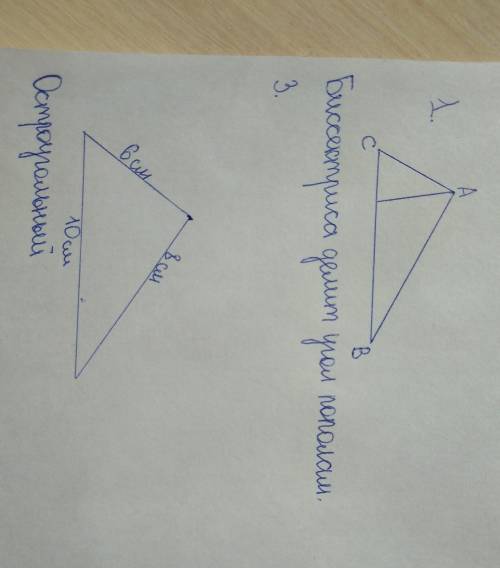 1.
A
C
B
Биссектриса делит угол пополам.
3.
6 см
8 см
10 см
Остроугольный